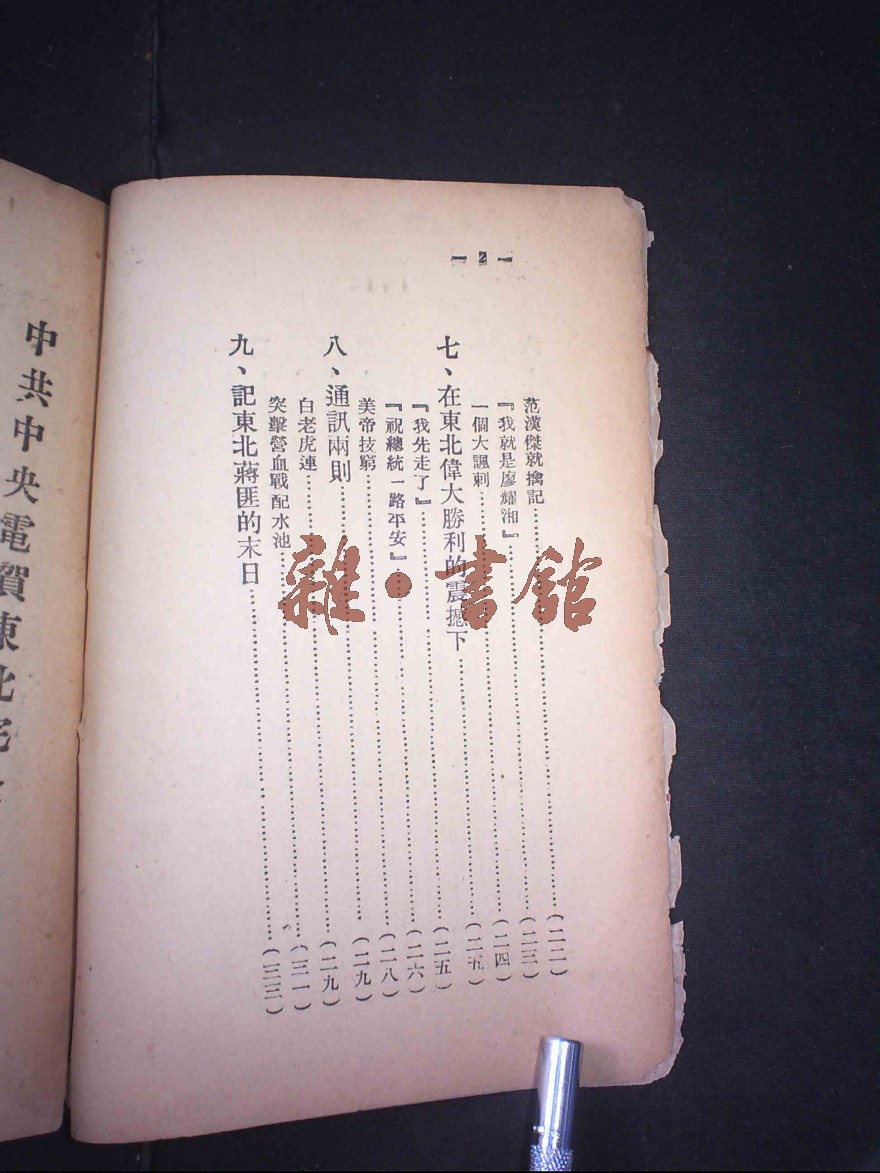 — 2 —
范漢傑就擒記……(二二)
『我就是廖耀湘』……(二三)
一個大諷刺……(二四)
七、在東北偉大勝利的震撼下……(二五)
『我先走了』……(二五)
『祝總統一路平安』……(二六)
美帝技窮……(二八)
八、通訊兩則……(二九)
白老虎連……(二九)
突擊營血戰配水池……(三一)
九、記東北蔣匪的末日……(三三)
中共中央電賀東北完
雜·書館